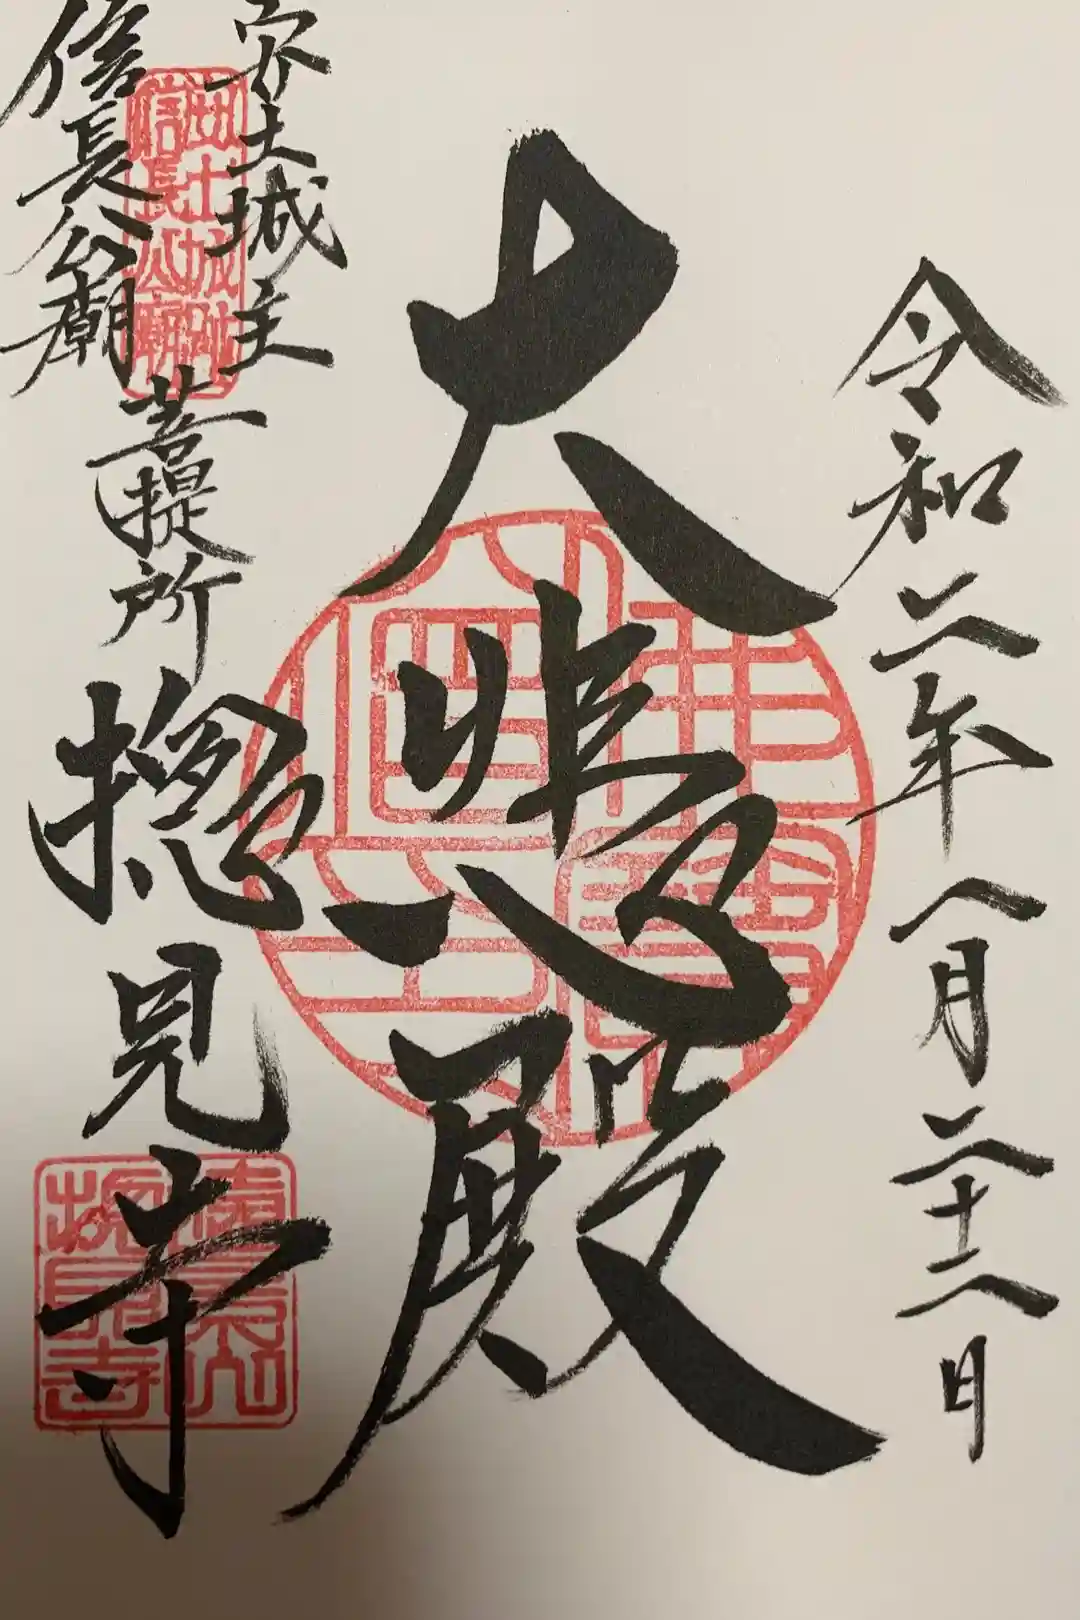 令和二年八月二十二日
大悲殿
安土城主
信長公廟
菩提所
摠見寺
安土城址
信長公廟
遠景山
摠見寺